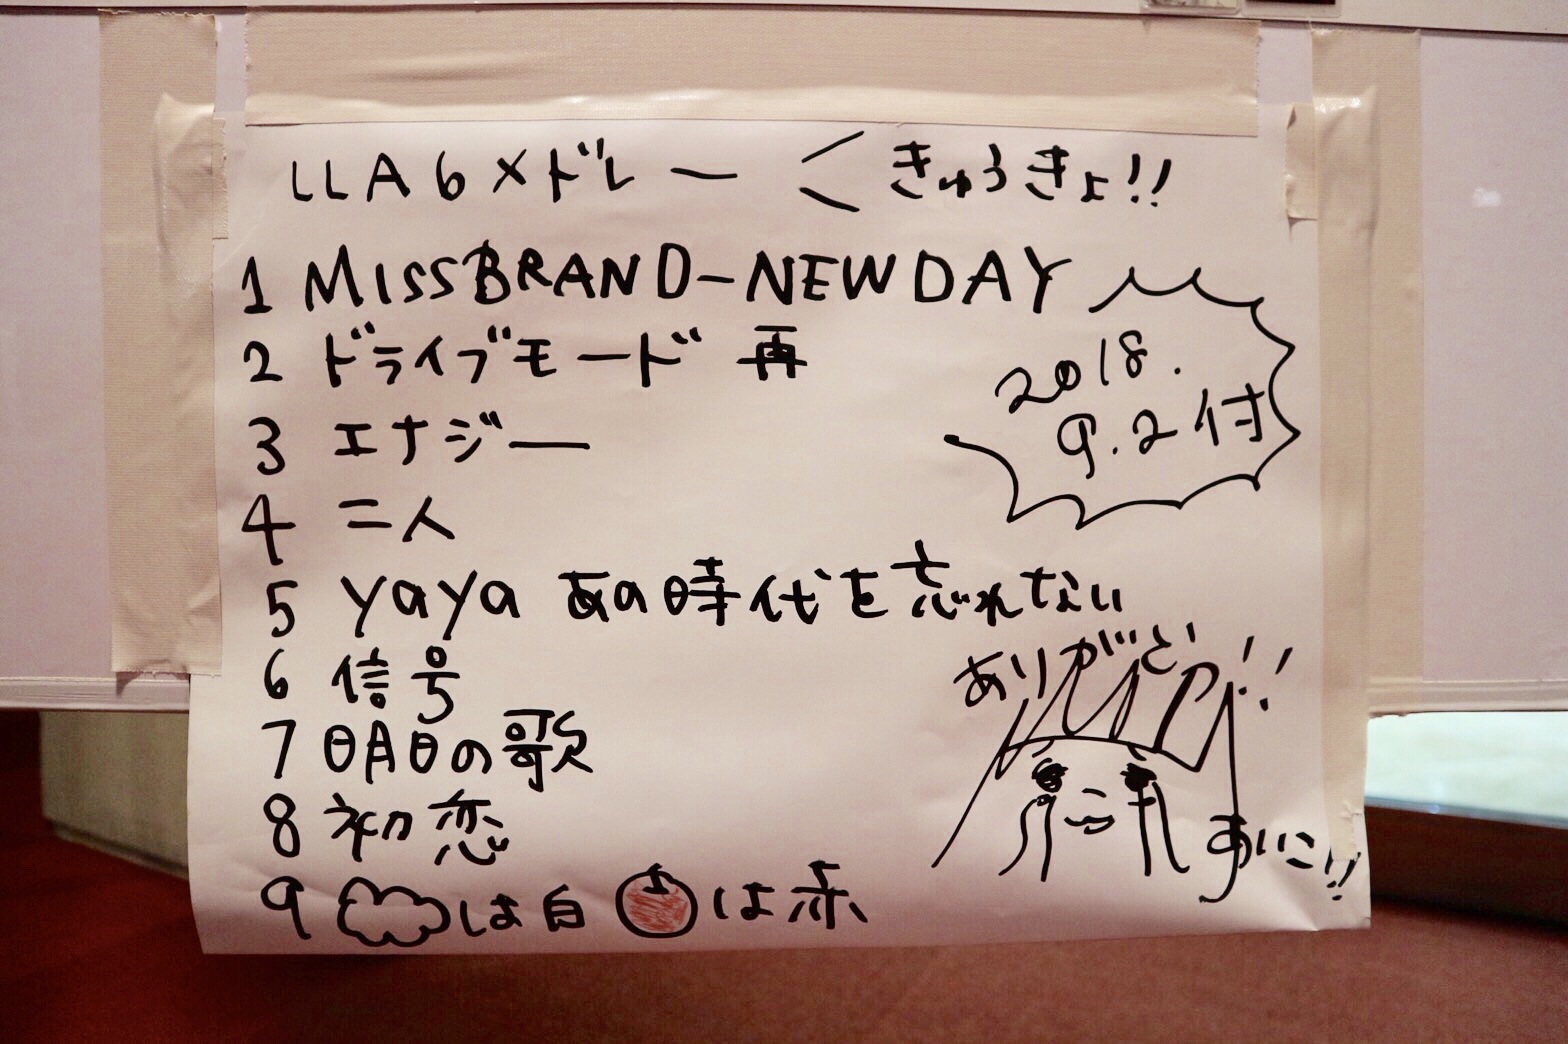 LLA6メドレー < きゅうきょ!!
1 MISS BRAND-NEW DAY
2 ドライブモード 再
3 エナジー
4 二人
2018.
9.2付
5 yaya あの時代を忘れない
6 信号
7 明日の歌
8 初恋
9 は白 は赤
ありがとう!!
あいこ!!